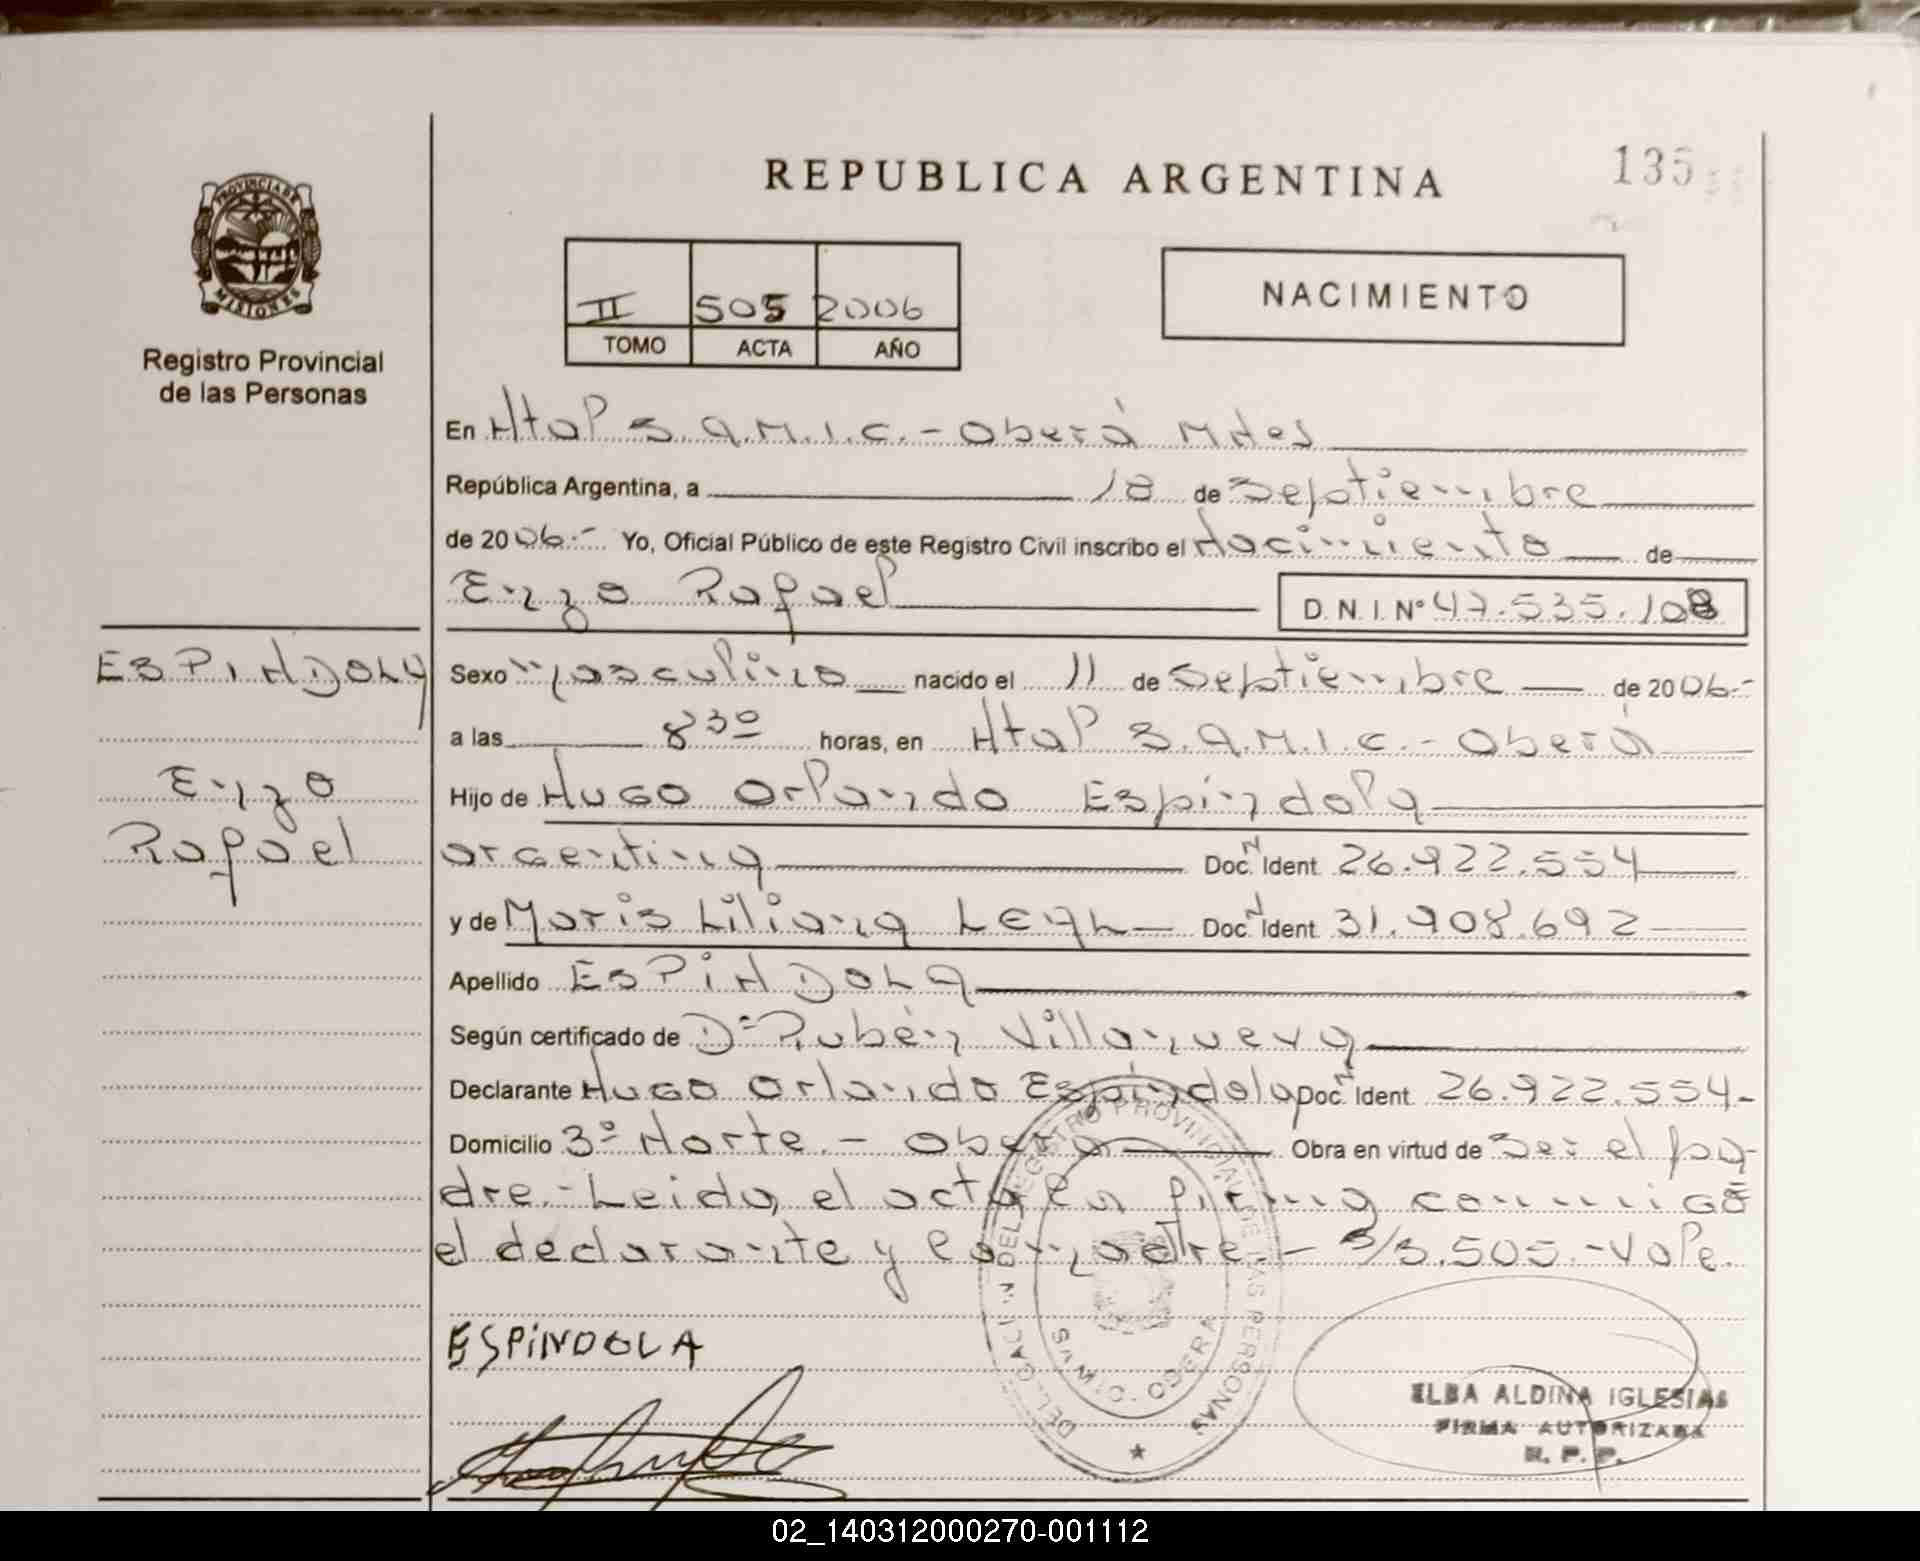 REPUBLICA ARGENTINA
135
PROVINCIA DE
MISIONES
Registro Provincial
de las Personas
II 505 2006
TOMO ACTA AÑO
NACIMIENTO
En Htal S.A.M.I.C.- Oberá Mnes
República Argentina, a 18 de Septiembre
de 2006.- Yo, Oficial Público de este Registro Civil inscribo el Nacimiento de
Enzo Rafael D.N.I. Nº 47.535.108
ESPINDOLA
Enzo
Rafael
Sexo masculino nacido el 11 de Septiembre de 2006.-
a las 8 30 horas, en Htal S.A.M.I.C.- Oberá
Hijo de Hugo Orlando Espindola
argentina Doc. N Ident. 26.922.554
y de Maris Liliana LEAL Doc. N Ident. 31.908.692
Apellido ESPINDOLA
Según certificado de Dº Rubén Villanueva
Declarante Hugo Orlando Espindola Doc. N Ident. 26.922.554.-
Domicilio 3º Norte - Oberá Obra en virtud de Ser el pa-
dre.- Leida el acta la firma conmigo
el declarante y la madre.- S/S.505.-Vale.
ESPINDOLA
REGISTRO PROVINCIAL DE LAS PERSONAS
ELBA ALDINA IGLESIAS
FIRMA AUTORIZADA
R. P. P.
02_140312000270-001112